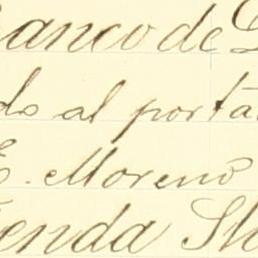 Banco de
do al porta
E. Moreno
enda